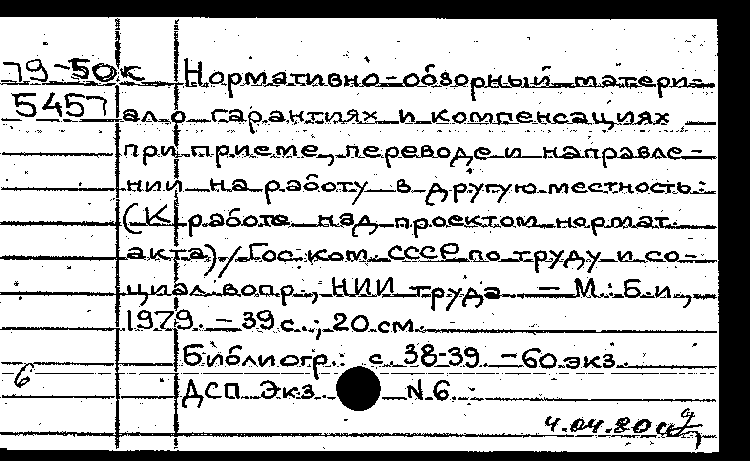 79-50к Нормативно-обзорный матери-
5457 ал о гарантиях и компенсациях
при приеме, переводе и направле-
нии на работу в другую местность:
(К работе над проектом нормат.
акта) / Гос. ком. СССР по труду и со-
циал. вопр., НИИ труда. - М.: Б.и.,
1979. - 39 с.; 20 см.
Библиогр.: с. 38-39. - 60 экз.
6 ДСП Экз. N 6.
4.04.80